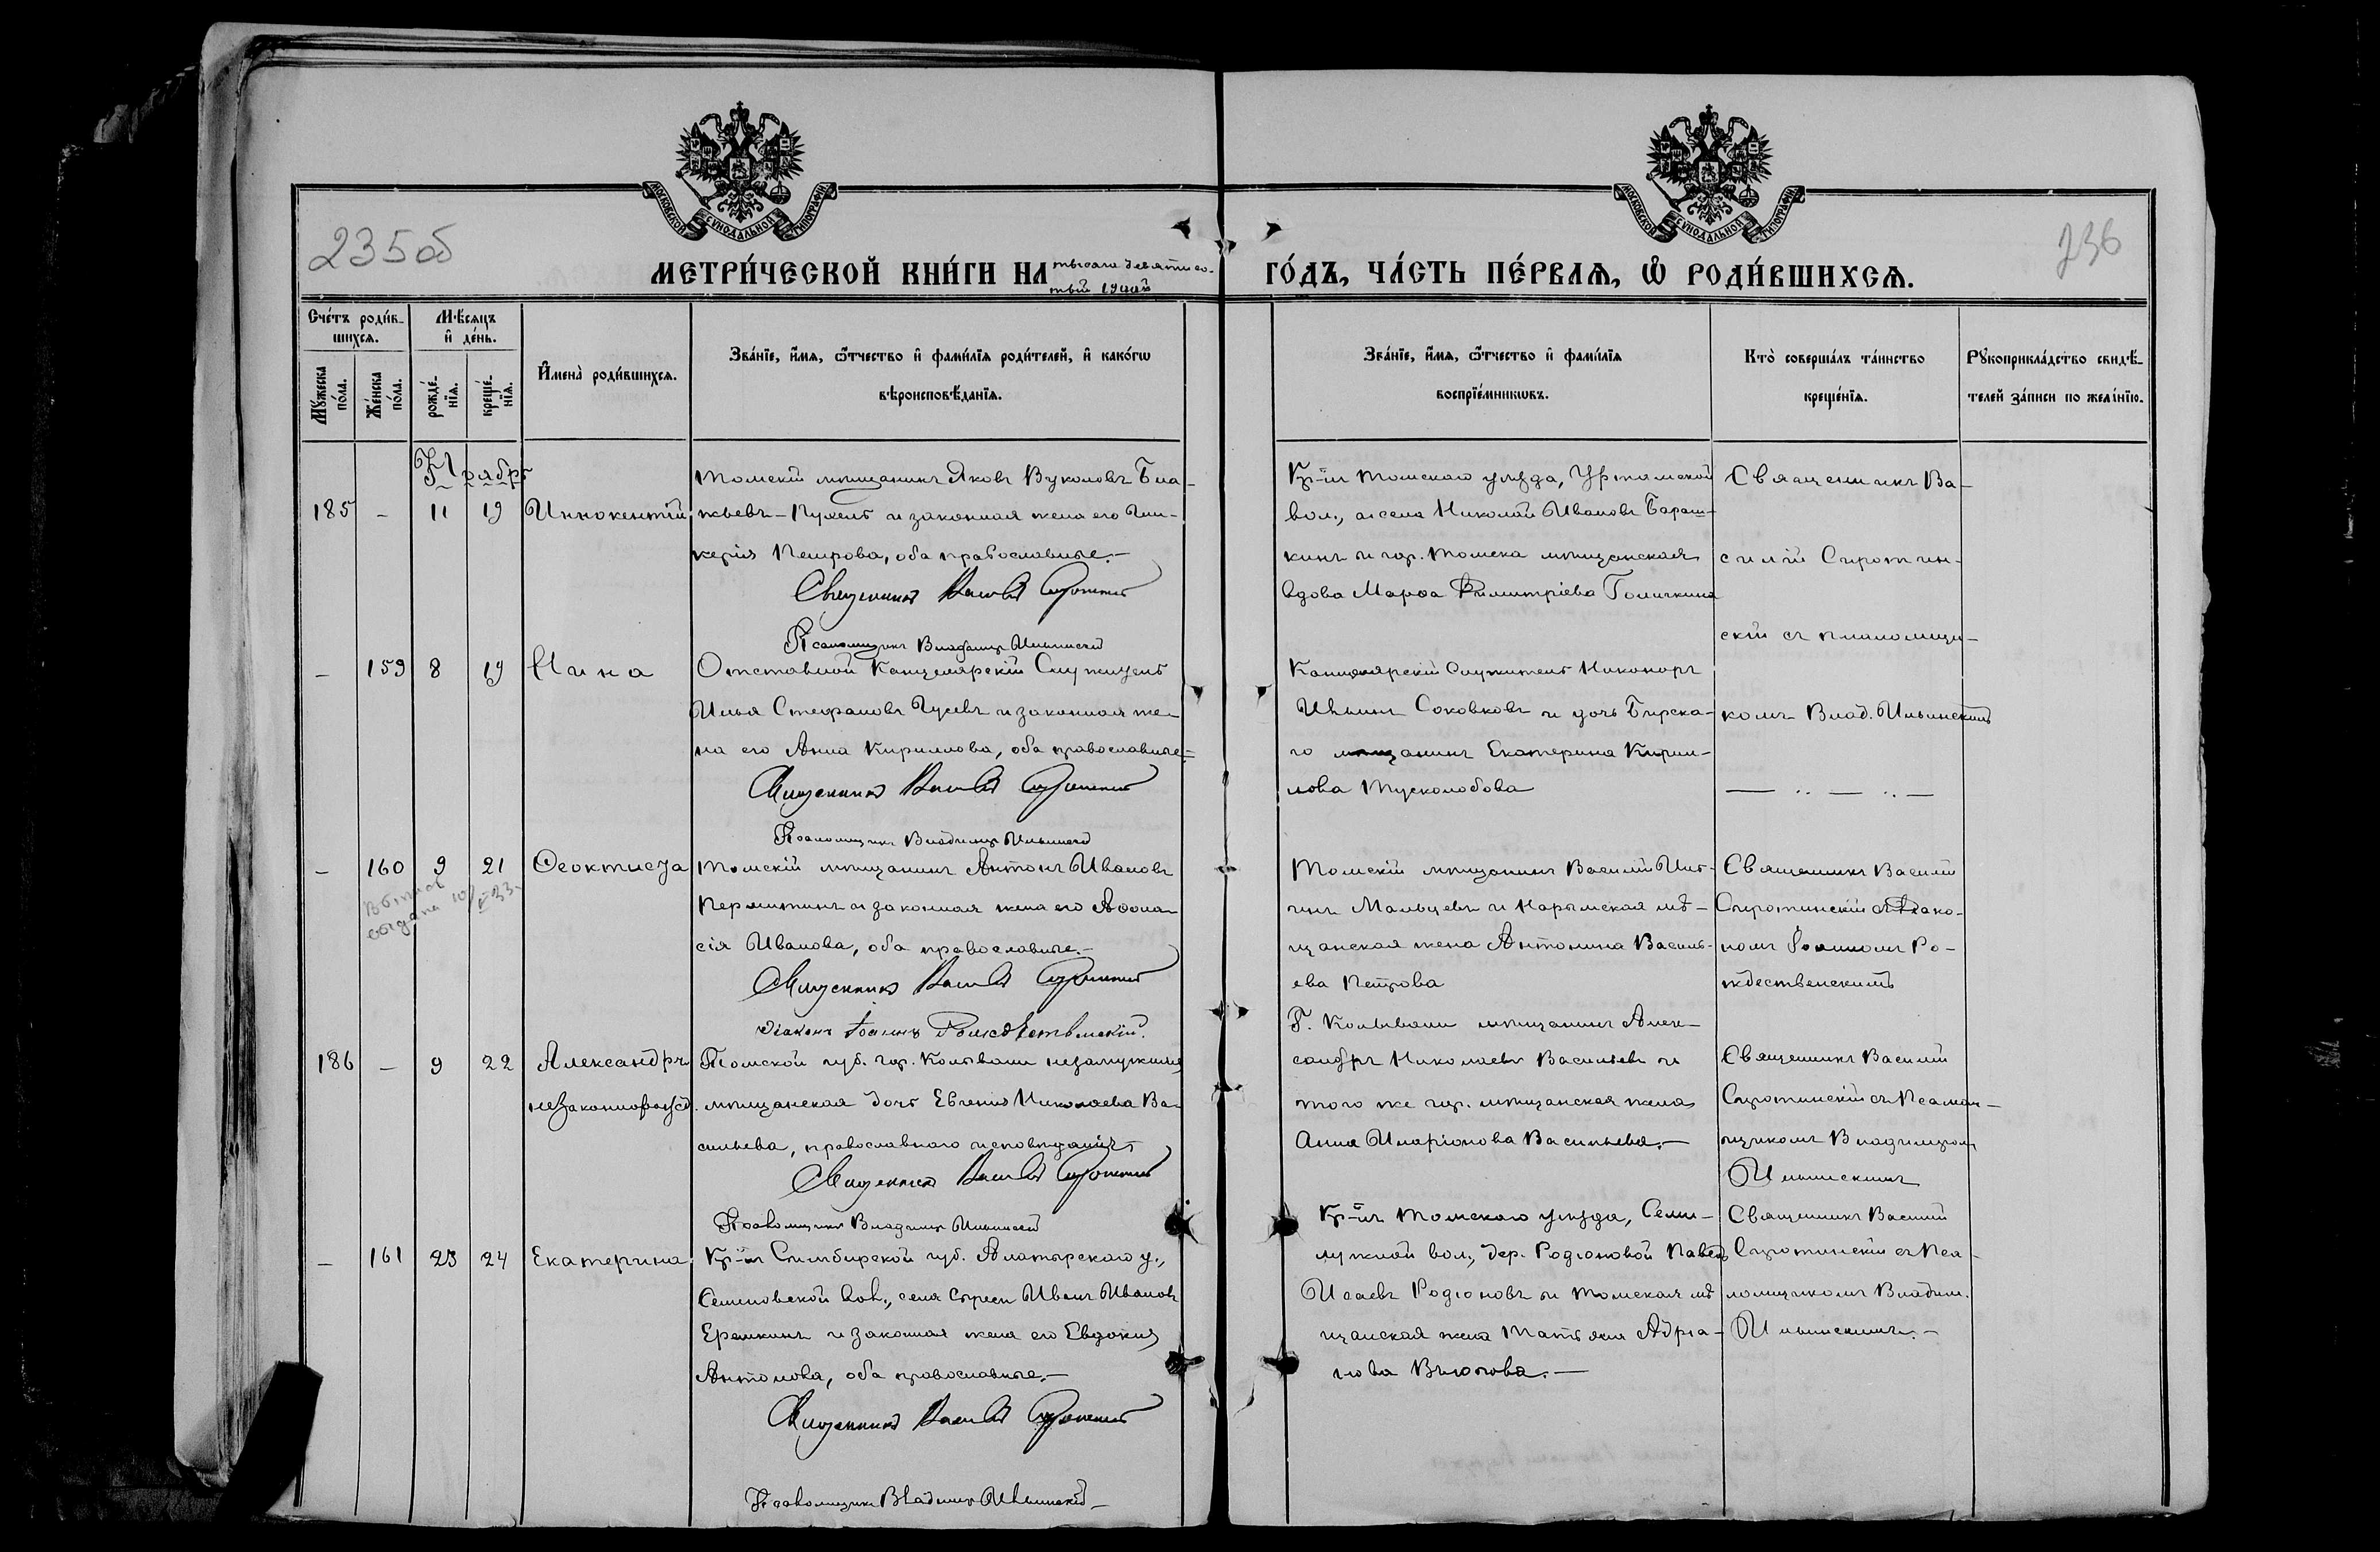 235 об
236
МОСКОВСКОЙ СѴНОДАЛЬНОЙ ТИПОГРАФІИ
МОСКОВСКОЙ СѴНОДАЛЬНОЙ ТИПОГРАФІИ
МЕТРИ́ЧЕСКОЙ КНИ́ГИ НА тысяча девятисо-
тый 1900й
ГО́ДЪ, ЧА́СТЬ ПЕ́РВАЯ, Ѽ РОДИ́ВШИХСЯ.
Сче́тъ роди́в-
шихся.
Мꙋ́жеска по́ла.
Же́нска по́ла.
Мѣ́сяцъ
и҆ де́нь.
рожде́-
нїя.
креще́-
нїя.
И҆мена̀ роди́вшихся.
Зва́нїе, и҆́мя, ѻ҆́тчество и҆ фами́лїя роди́телей, и҆ како́гѡ
вѣроисповѣ́данїя.
Зва́нїе, и҆́мя, ѻ҆́тчество и҆ фами́лїя
воспрїе́мникѡвъ.
Кто̀ соверша́лъ та́инство
креще́нїя.
Рꙋкоприкла́дство свидѣ́-
телей за́писи по жела́нїю.
Ноябрь
185 - 11 19 Иннокентій
Томскій мѣщанинъ Яковъ Вуколовъ
и законная жена его Гли-
керія Петрова, оба православные.-
Священникъ Василій Сиротинскій
Псаломщикъ Владиміръ Ильинскій
Кр-нъ Томскаго уѣзда, Уртамской
вол., села Николай Ивановъ Бараш-
кинъ и гор. Томска мѣщанская
вдова Марѳа Димитріева
Священникъ Ва-
силій Сиротин-
скій съ псаломщи-
комъ Влад. Ильинскимъ
- 159 8 19 Нина
Отставной Канцелярскій Служитель
Илья Стефановъ Гусевъ и законная же-
на его Анна Кириллова, оба православные.-
Священникъ Василій Сиротинскій
Псаломщикъ Владиміръ Ильинскій
Канцелярскій Служитель Никоноръ
Ильинъ Соковковъ и дочь Бирска-
го мѣщанинъ Екатерина Кирил-
лова Мусколобова
— ·· — ·· —
- 160 9 21 Ѳеоктиста
выдана 10/ 23
Томскій мѣщанинъ Антонъ Ивановъ
Пермитинъ и законная жена его Аѳона-
сія Иванова, оба православные.-
Священникъ Василій Сиротинскій
Діаконъ Іоаннъ Рождественскій.
Томскій мѣщанинъ Василій
Мальцевъ и Нарымская мѣ-
щанская жена Антонина Василь-
ева Петрова
Священникъ Василій
Сиротинскій съ Діако-
номъ Іоанномъ Ро-
ждественскимъ
186 - 9 22 Александръ
незаконнорожд.
Томской губ. гор. Колывани незамужняя
мѣщанская дочь Евгенія Николаева Ва-
сильева, православнаго исповѣданія
Священникъ Василій Сиротинскій
Псаломщикъ Владиміръ Ильинскій
Г. Колывани мѣщанинъ Алек-
сандръ Николаевъ Васильевъ и
того же гор. мѣщанская жена
Анна Иларіонова Васильева.-
Священникъ Василій
Сиротинскій съ Псалом-
щикомъ Владиміромъ
Ильинскимъ
- 161 23 24 Екатерина
Кр-нъ Симбирской губ. Алатырскаго у.,
Семеновской вол., села Иванъ Ивановъ
Еремкинъ и законная жена его Евдокія
Антонова, оба православные.-
Священникъ Василій Сиротинскій
Псаломщикъ Владиміръ Ильинскій-
Кр-нъ Томскаго уѣзда, Семи-
лужной вол., дер. Родіоновой Павелъ
Исаевъ Родіоновъ и Томская мѣ
щанская жена Татьяна Адріа-
нова Вьюгова.-
Священникъ Василій
Сиротинскій съ Пса-
ломщикомъ Владим.
Ильинскимъ.-